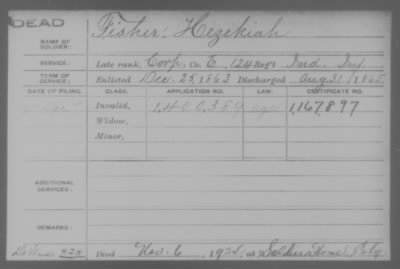 DEAD
NAME OF SOLDIER: Fisher, Hezekiah
SERVICE: Late rank, Corp. Co. E, 124 Reg't Ind. Inf.
TERM OF SERVICE: Enlisted Dec. 25, 1863 Discharged Aug. 31, 1865
DATE OF FILING. CLASS. APPLICATION NO. LAW. CERTIFICATE NO.
Invalid, 1,400,389 1,167,897
Widow,
Minor,
ADDITIONAL SERVICES:
REMARKS:
Died Nov. 6, at Soldiers Home